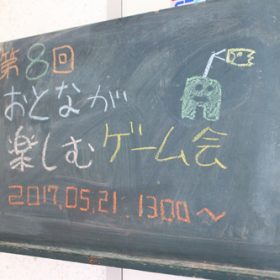 第8回
おとなが
楽しむゲーム会
2017.05.21.1300～